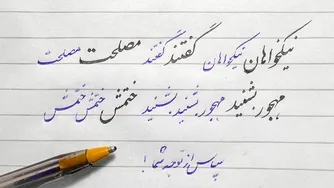 نیکخواهان نیکخواهان گفتند گفتند مصلحت مصلحت
مهجور بشنید مهجور بشنید بشنید ختمش ختمش ختمش
سپاس از توجه شما!